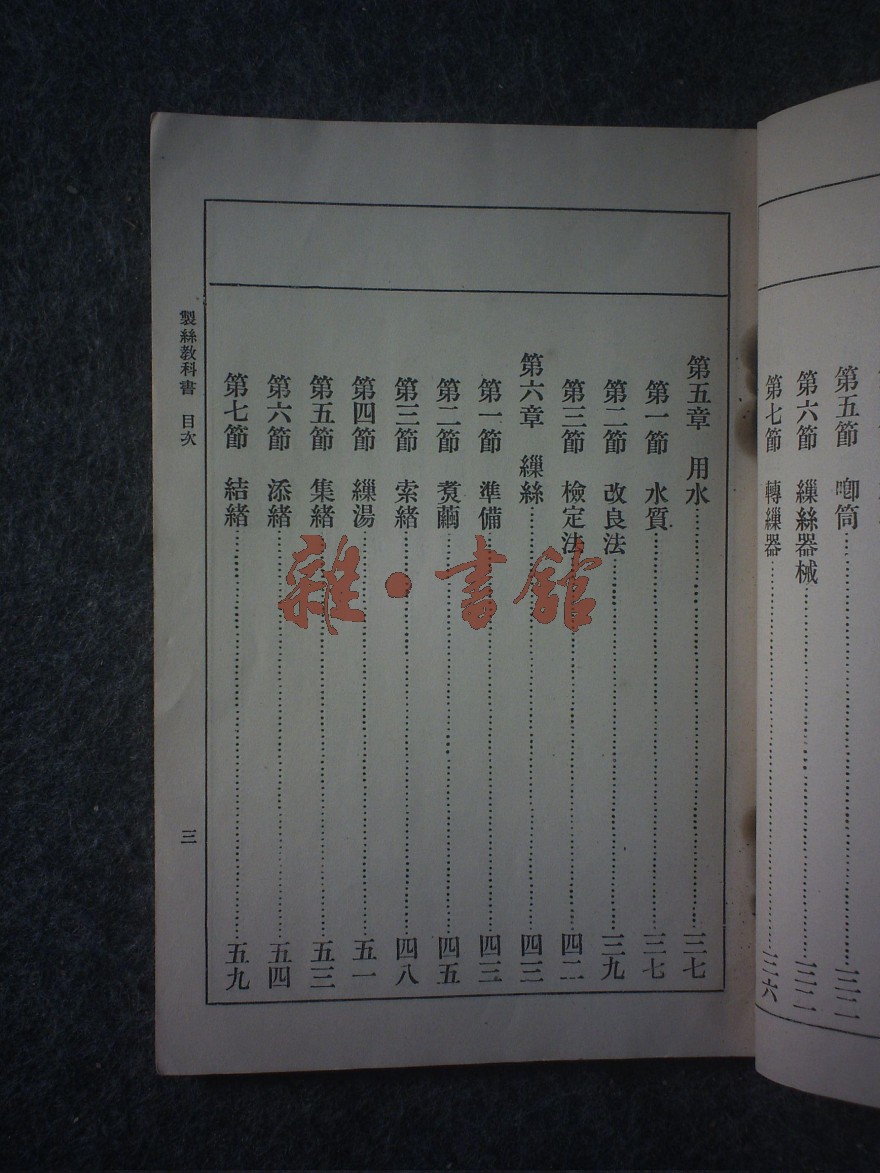 第五節 喞筒 三二
第六節 繅絲器械 三二
第七節 轉繅器 三六
第五章 用水 三七
第一節 水質 三七
第二節 改良法 三九
第三節 檢定法 四二
第六章 繅絲 四三
第一節 準備 四三
第二節 煑繭 四五
第三節 索緒 四八
第四節 繅湯 五一
第五節 集緒 五三
第六節 添緒 五四
第七節 結緒 五九
製絲教科書 目次 三
雜·書館